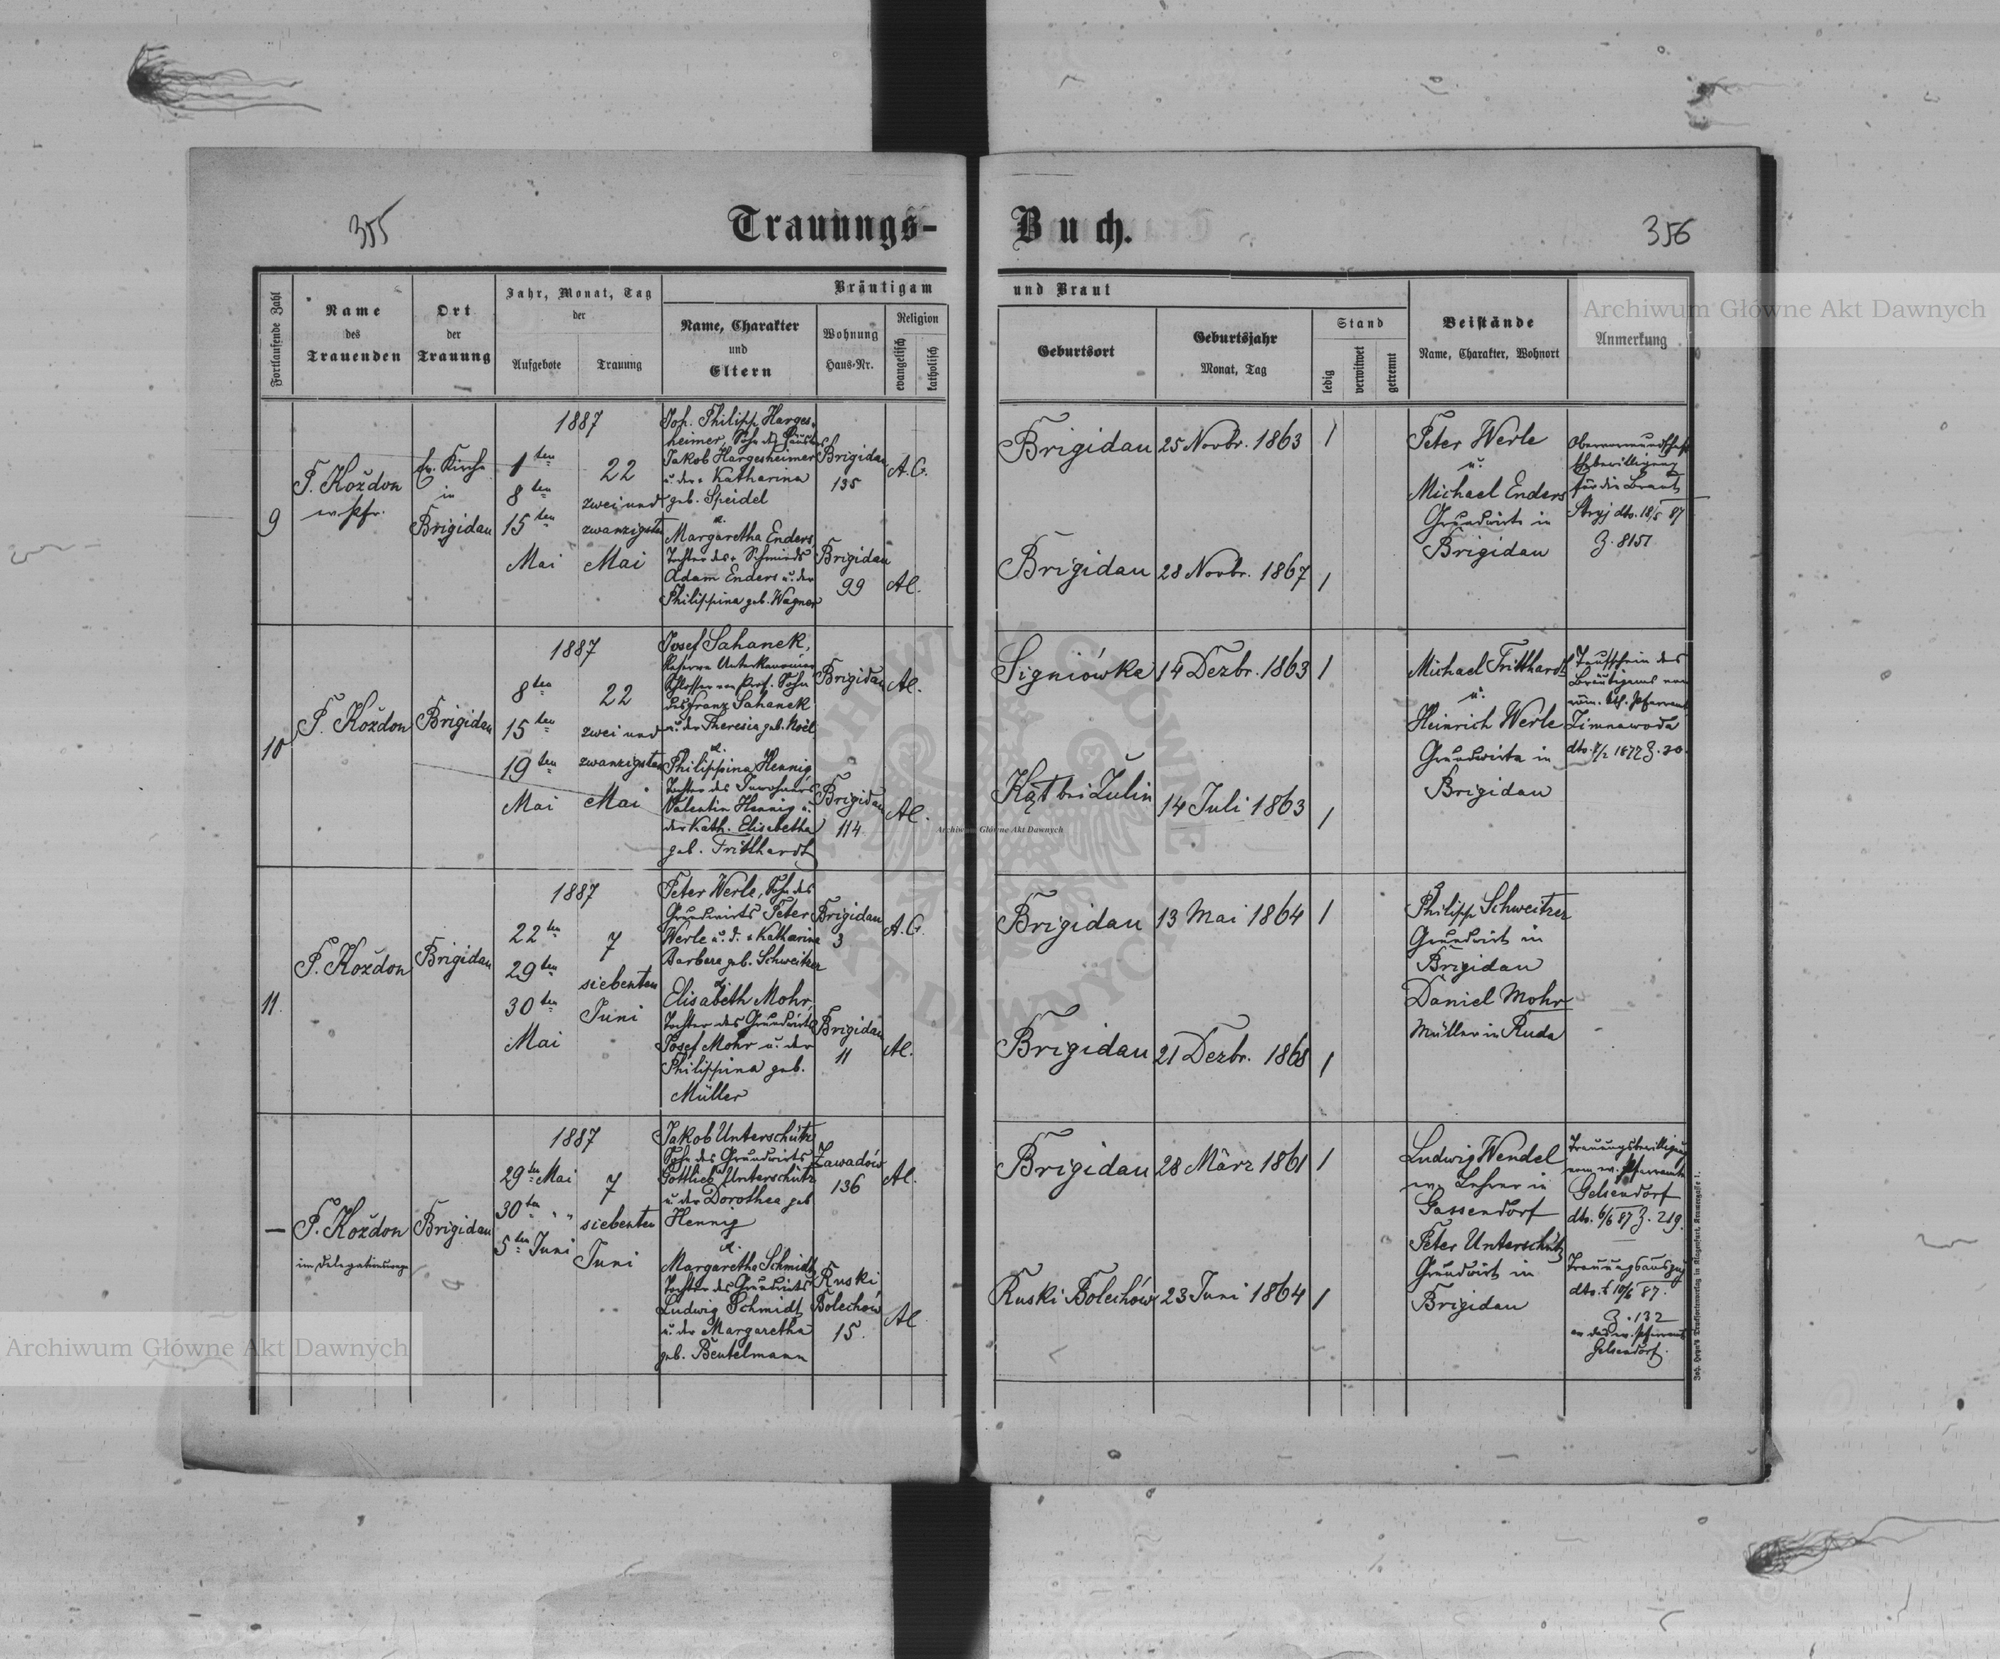 355
Trauungs-
Buch.
356
Archiwum Główne Akt Dawnych
Fortlaufende Zahl
Name
des
Trauenden
Ort
der
Trauung
Jahr, Monat, Tag
der
Aufgebote
Trauung
Bräutigam
und Braut
Name, Charakter
und
Eltern
Wohnung
Haus-Nr.
Religion
evangelisch
katholisch
Geburtsort
Geburtsjahr
Monat, Tag
Stand
ledig
verwitwet
getrennt
Beistände
Name, Charakter, Wohnort
Anmerkung
9
F. Koždon
ev. Pfr.
Ev. Kirche
in
Brigidau
1887
1ten
8ten
15ten
Mai
22
zwei und
zwanzigsten
Mai
Joh. Philipp Harges-
heimer, Sohn des
Jakob Hargesheimer
u. der Katharina
geb. Speidel
u.
Margaretha Enders
Tochter des Schmieds
Adam Enders u. der
Philippina geb. Wagner
Brigidau
135
Brigidau
99
A.C.
A.C.
Brigidau
25 Novbr. 1863
1
Brigidau
28 Novbr. 1867
1
Peter Werle
u.
Michael Enders
Grundwirte in
Brigidau
Obervormundschaftl.
Ehebewilligung
für die Braut
Stryj dto. 18/5 87
Z. 8151
10
F. Koždon
Brigidau
1887
8ten
15ten
19ten
Mai
22
zwei und
zwanzigsten
Mai
Josef Sahanek,
Reserve Unterkanonier
Schlosser von Prof. Sohn
des Franz Sahanek
u. der Theresia geb. Noël
u.
Philippina Hennig
Tochter des Inwohners
Valentin Hennig u.
der Kath. Elisabetha
geb. Fritthardt
Brigidau
Brigidau
114
A.C.
A.C.
Signiówka
14 Dezbr. 1863
1
Kąt bei Lulin
14 Juli 1863
1
Michael Fritthardt
u.
Heinrich Werle
Grundwirte in
Brigidau
Taufschein des
Bräutigams vom
röm. kth. Pfarramt
Zimnawoda
dto. 1877 Z. 20.
11.
F. Koždon
Brigidau
1887
22ten
29ten
30ten
Mai
7
siebenten
Juni
Peter Werle, Sohn des
Grundwirts Peter
Werle u. d. Katharina
Barbara geb. Schweitzer
u.
Elisabeth Mohr
Tochter des Grundwirts
Josef Mohr u. der
Philippina geb.
Müller
Brigidau
3
Brigidau
11
A.C.
A.C.
Brigidau
13 Mai 1864
1
Brigidau
21 Dezbr. 1868
1
Philipp Schweitzer
Grundwirt in
Brigidau
Daniel Mohr
Müller in Ruda
—
F. Koždon
im Delegationswege
Brigidau
1887
29ten Mai
30ten " "
5ten Juni
7
siebenten
Juni
Jakob Unterschütz
Sohn des Grundwirts
Gottlieb Unterschütz
u. der Dorothea geb.
Hennig
u.
Margaretha Schmidt
Tochter des Grundwirts
Ludwig Schmidt
u. der Margaretha
geb. Beutelmann
Zawadów
136
Ruski
Bolechów
15.
A.C.
A.C.
Brigidau
28 März 1861
1
Ruski Bolechów
23 Juni 1864
1
Ludwig Wendel
ev. Lehrer in
Gassendorf
Peter Unterschütz
Grundwirt in
Brigidau
Trauungsbewilligung
vom ev. Pfarramte
Gelsendorf
dto. 6/6 87 Z. 219.
Trauungsauszug
dto. 10/6 87.
Z. 132
an das ev. Pfarramt
Gelsendorf.
Archiwum Główne Akt Dawnych
Archiwum Główne Akt Dawnych